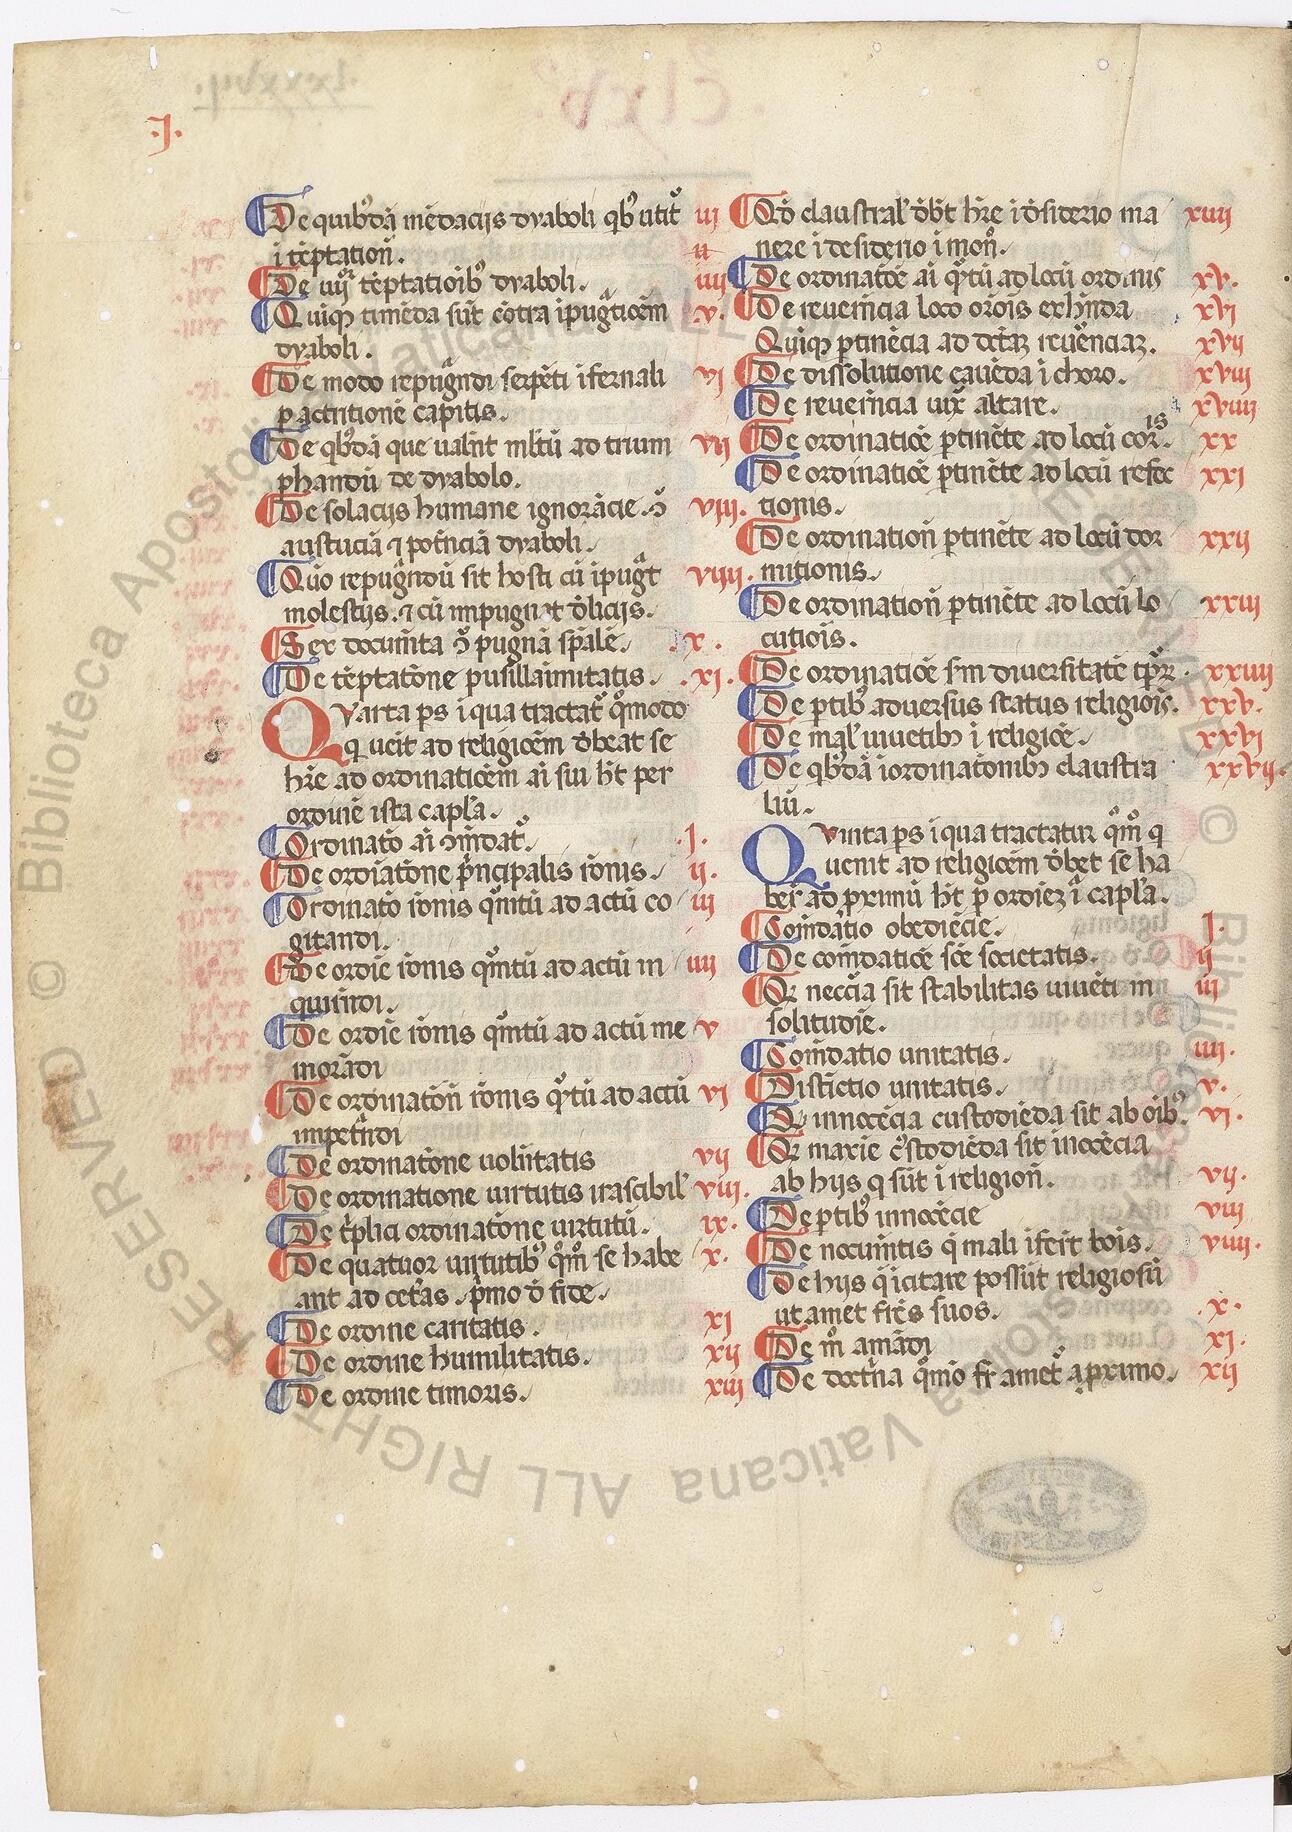 .I.
De quibꝰdā mēdacijs dyaboli qbꝰ utit᷑ iii
i tēptatioñ. ii
De iiijr tēptatioibꝰ dyaboli. iiii
Quiqꝫ timēda sūt cōtra ipugᵃticēm .v.
dyaboli.
De modo repugᵃndi serpēti ifernali vi
p actritionē capitis.
De qbꝰdā que ualēnt mltū ad trium vii
phandū de dyabolo.
De solacijs humane ignorācie. ↄ̄ viii.
austuciā ⁊ potēnciā dyaboli.
Quo repugᵃndū sit hosti cū ipugᵃt viiii.
molestijs. ⁊ cū impugnat dlicijs.
Sex documīta ↄ̄ pugnā spālē. .x.
De tēptatōne pusillaimitatis. .xi.
Qvarta ps i qua tractat᷑ qͦmodo
q ueit ad religiōēm dēbeat se
hr̄e ad ordinaticēm ai sui hīt per
ordinē ista capl̄a.
Ordinatō ai ↄmēdat᷑. .I.
De ordiatōne prīncipalis rōnis. ii.
Ordinatō rōnis qᵃntū ad actū co iii
gitandi.
De ordīe rōnis qᵃntū ad actū in iiii
quirēdi.
De ordīe rōnis qᵃntū ad actū me v
morādi
De ordinatōn̄ rōnis qᵃtū ad actū vi
impetᵃndi
De ordinatōne uolūtatis vii
De ordinatione uirtutis irascibil᷑ viii.
De tⁱplici ordinatōne uirtutū. ix.
De quatuor uirtutibꝰ qͦm̄ se habe x.
ant ad cet̄as. pͥmo d̄ fide.
De ordine caritatis. xi
De ordine humilitatis. xii
De ordine timoris. xiii
Qd̄ claustral᷑ dēbt hr̄e i dēsiderio ma xiiii
nere i desiderio i mon̄.
De ordinatōe ai qᵃtū ad locū ordinis xv.
De reuerēncia loco orōis exhīnda xvi
Quiqꝫ ptinēcia ad dc̄taꝫ reuēnciaꝫ. xvii
De dissolutione cauēda i choro. xviii
De reuerēncia iuxͣ altare. xviiii
De ordinatiōe ptinēte ad locū corīs. xx
De ordinatiōe ptinēte ad locū refec xxi
tionis.
De ordination̄ ptinēte ad locū dor xxii
mitionis.
De ordination̄ ptinēte ad locū lo xxiii
cutiōis.
De ordinatiōe sm̄ diuersitatē tp̄ꝝ. xxiiii
De ptibꝰ aduersus status religiōis. xxv.
De mal᷑ uiuētibꝫ i religiōe. xxvi
De qbꝰdā iordinatōnibꝫ claustra xxvii.
liū.
Qvinta ps i qua tractatur qͦm̄ q
uenit ad religiōēm dēbet se ha
ber̄ ad pxīmū hīt p ordīeꝫ ī capl̄a.
Comēdatio obediēcie. I.
De comēdatiōe sc̄e societatis. ii
Qꝫ neccīa sit stabilitas uiuēti in iii
solitudīe.
Comēdatio unitatis. iiii.
Distīctio unitatis. v.
Qꝫ innocēcia custodiēda sit ab oībꝰ. vi.
Qꝫ maxīe cͧstodiēda sit inocēcia
ab hijs q sūt i religion̄. vii.
De ptibꝰ innocēcie viii
De nocumētis q̄ mali iferūt bōis. viiii.
De hijs q̄ icitare possūt religiosū
ut amet fr̄es suos. .x.
De mͦ amādi xi.
De doctⁱna qͦmō fr̄ amet᷑ a pxīmo. xii